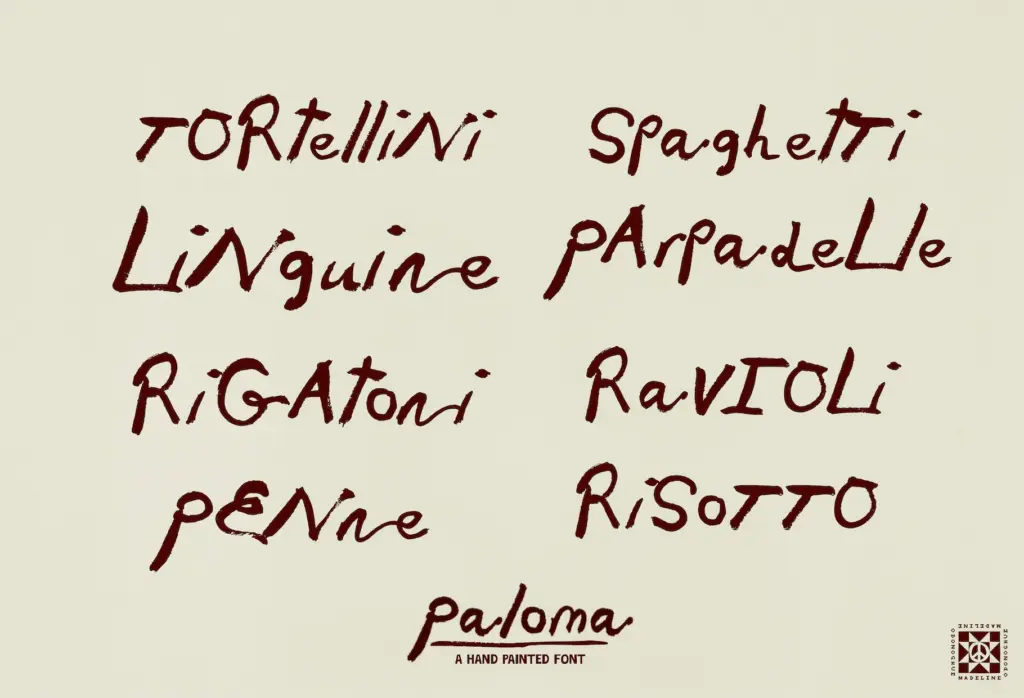 TORtelliNi
SpaghetTi
LiNguine
pArpadeLle
RiGAtoni
RaVIOLi
pENne
RiSoTTO
paloma
A HAND PAINTED FONT
MADELINE
MADELINE